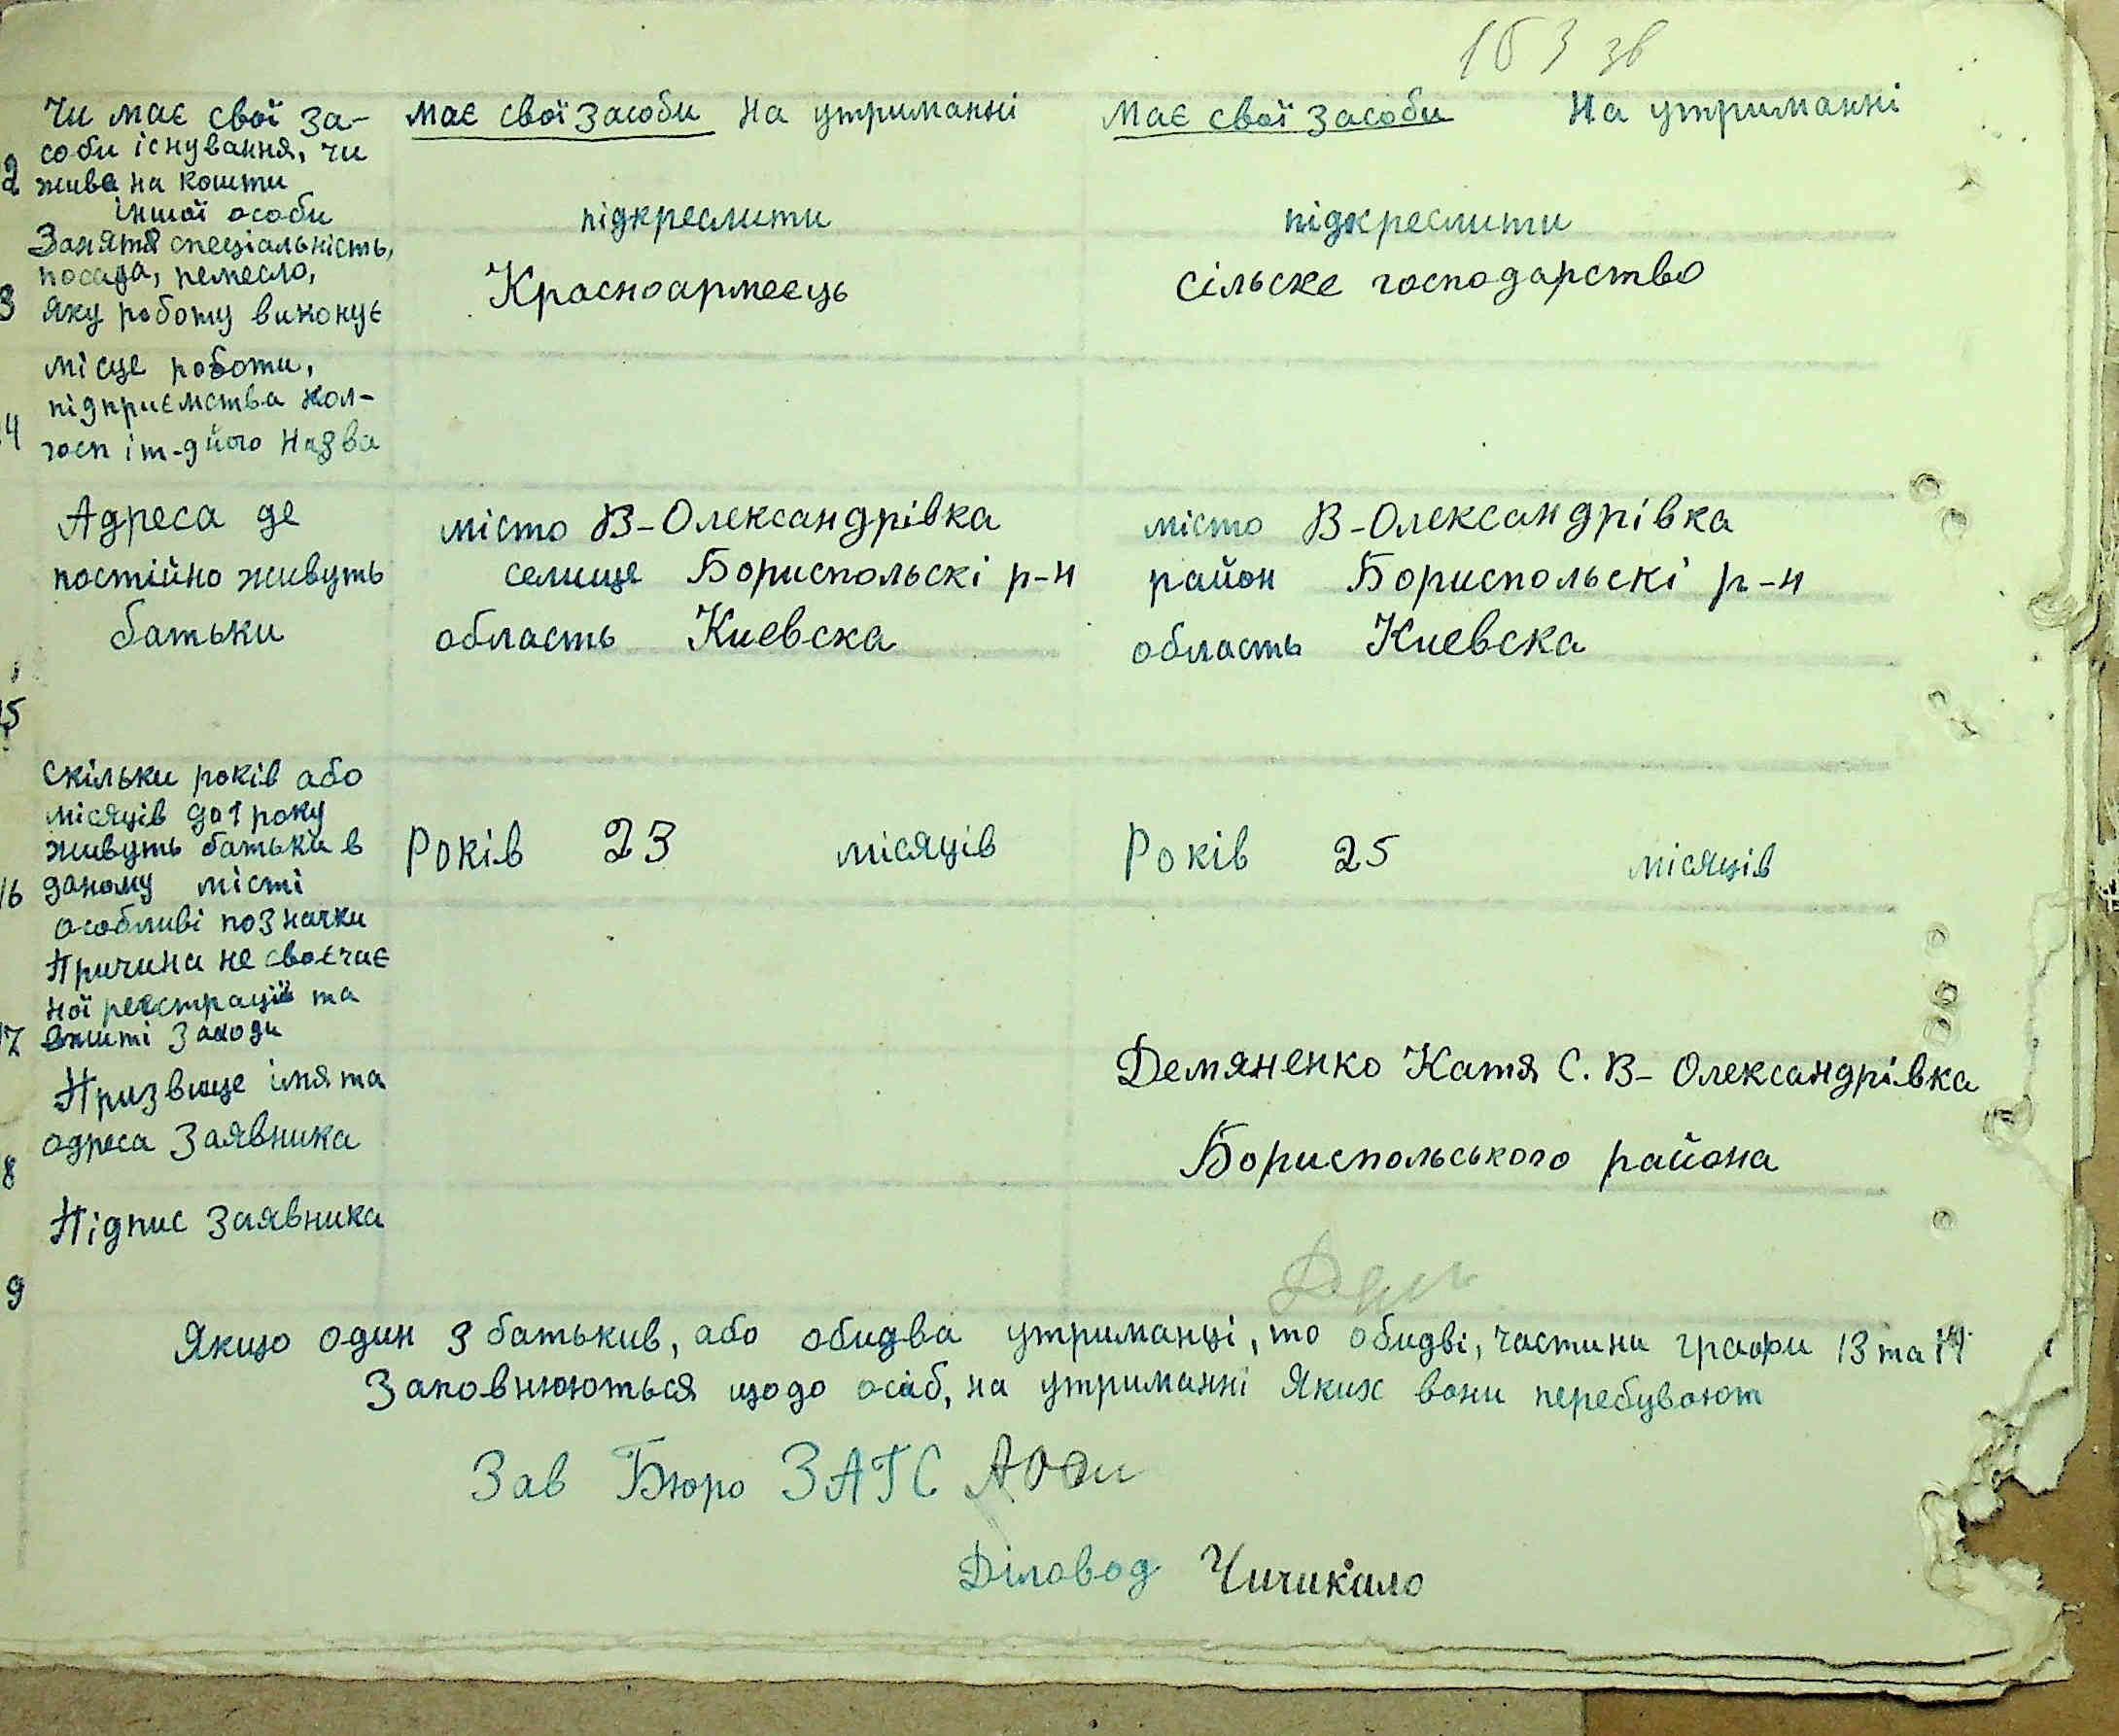 163 зв
Чи має свої за- має свої засоби На утриманні має свої засоби На утриманні
соби існування, чи
2 живе на кошти
іншої особи підкреслити підкреслити
Заняття спеціальність,
посада, ремесло, Красноармеець сільске господарство
3 яку роботу виконує
місце роботи,
підприємства кол-
4 госп і т-д його назва
Адреса де місто В-Олександрівка місто В-Олександрівка
постійно живуть селище Бориспольскі р-н район Бориспольскі р-н
батьки область Киевска область Киевска
15
скільки років або
місяців до 1 року
живуть батьки в Років 23 місяців Років 25 місяців
16 даному місті
особливі позначки
Причина не своєчас
ної реєстрації та
17 вжиті заходи
Призвище імя та Демяненко Катя С. В-Олександрівка
адреса Заявника Бориспольського района
8
Підпис Заявника
9
Якщо один з батькив, або обидва утриманці, то обидві, частини графи 13 та 14
Заповнюються щодо осіб, на утриманні яких вони перебувають
Зав Бюро ЗАГС
Діловод Чичикало